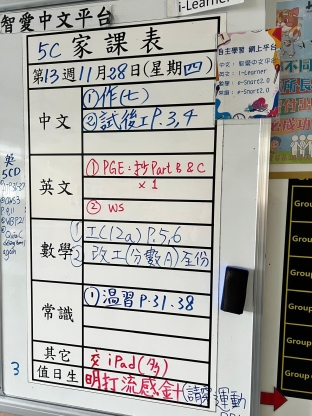 智愛中文平台
i-Learner
5C 家課表
第13週11月28日(星期四)
中文
①作(七)
②試後工P.3,4
英文
①PGE:抄Part B & C
x 1
② WS
數學
①工(12a) P.5,6
②改工(分數A)全份
常識
①温習P.31.38
其它
交iPad(多)
值日生
明打流感針(請穿運動
自主學習 網上平台
中文：智愛中文平台
英文：i-Learner
數學：e-Smart2.0
常識：e-Smart2.0
英
5CD
3
不同
成功
Group
Group
Group
Group
Group